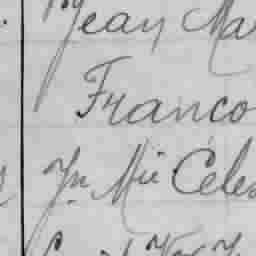 Jean Ma
Franco
Jn Mie Céles